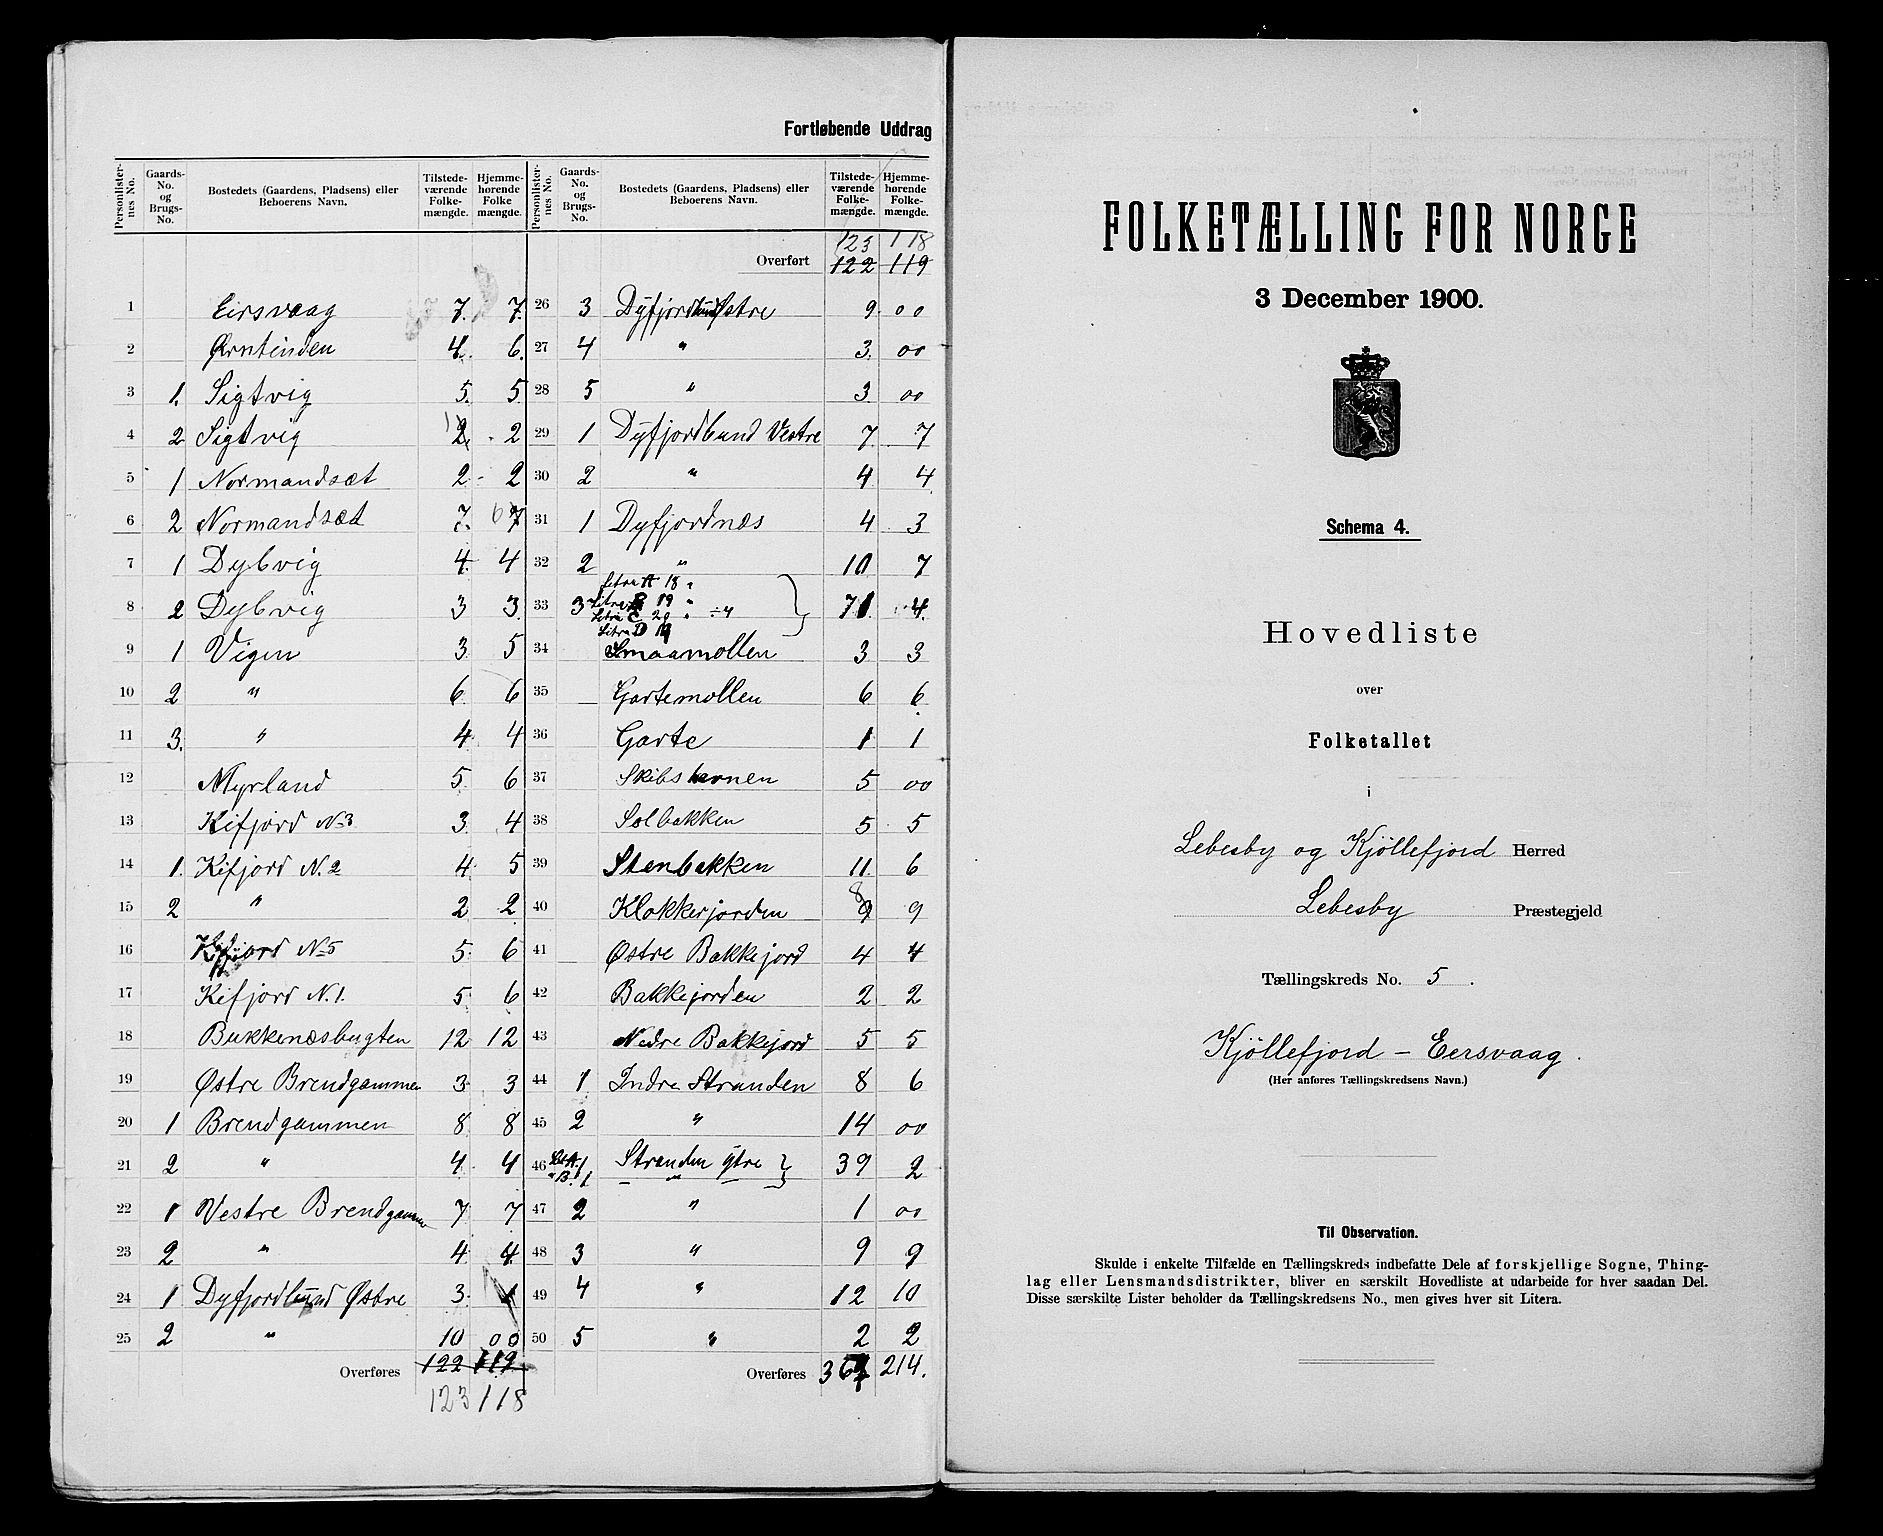 Fortløbende Uddrag
Personlister-nes No. Gaards-No. og Brugs-No. Bostedets (Gaardens, Pladsens) eller Beboerens Navn. Tilstede-værende Folke-mængde. Hjemme-hørende Folke mængde.
1 Eirsvaag 7. 7.
2 Ørntinden 4. 6.
3 1. Sigtvig 5. 5.
4 2 Sigtvig 2 2
5 1 Normandsæt 2 2
6 2 Normandsæt 7. 7
7 1 Dybvig 4. 4
8 2 Dybvig 3 3.
9 1 Vigen 3. 5
10 2 " 6. 6
11 3. " 4 4
12 Myrland 5 6
13 Kifjord N.3 3 4
14 1. Kifjord N.2 4 5
15 2 " 2 2
16 Kifjord N.5 5 6
17 Kifjord N.1. 5 6
18 Bukkenæsbugten 12 12
19 Østre Brendgammen 3 3
20 1 Brendgammen 8 8
21 2 " 4 4
22 1 Vestre Brendgammen 7 7
23 2 " 4 4
24 1 Dyfjordbund Østre 3
25 2 " 10 00
Overføres 122 119
123 118
Personlister-nes No. Gaards-No. og Brugs-No. Bostedets (Gaardens, Pladsens) eller Beboerens Navn. Tilstede-værende Folke-mængde. Hjemme-hørende Folke-mængde.
123 118
Overført 122 119
26 3 Dyfjordbund Østre 9 00
27 4 " 3. 00
28 5 " 3 00
29 1 Dyfjordbund Vestre 7 7
30 2 " 4 4
31 1 Dyfjordnæs 4 3
32 2 " 10 7
Litra A 18 "
33 3 Litra B 19 " 71 4
Litra C 20 " ÷4
Litra D
34 Smaamollen 3 3
35 Gartemollen 6 6
36 Garte 1 1
37 Skibshavnen 5 00
38 Solbakken 5 5
39 Stenbakken 11 6
40 Klokkerjorden 8 9 9
41 Østre Bakkejord 4 4
42 Bakkejorden 2 2
43 Nedre Bakkejord 5 5
44 1 Indre Stranden 8 6
45 2 " 14 00
46 Lit A. 1 Stranden ytre 39 2
" B. 1 "
47 2 " 1 00
48 3 " 9 9
49 4 " 12 10
50 5 " 2 2
Overføres 214.
FOLKETÆLLING FOR NORGE
3 December 1900.
Schema 4.
Hovedliste
over
Folketallet
i
Lebesby og Kjöllefjord Herred
Lebesby Præstegjeld
Tællingskreds No. 5.
Kjöllefjord - Eersvaag.
(Her anføres Tællingskredsens Navn.)
Til Observation.
Skulde i enkelte Tilfælde en Tællingskreds indbefatte Dele af forskjellige Sogne, Thing-
lag eller Lensmandsdistrikter, bliver en særskilt Hovedliste at udarbeide for hver saadan Del.
Disse særskilte Lister beholder da Tællingskredsens No., men gives hver sit Litera.